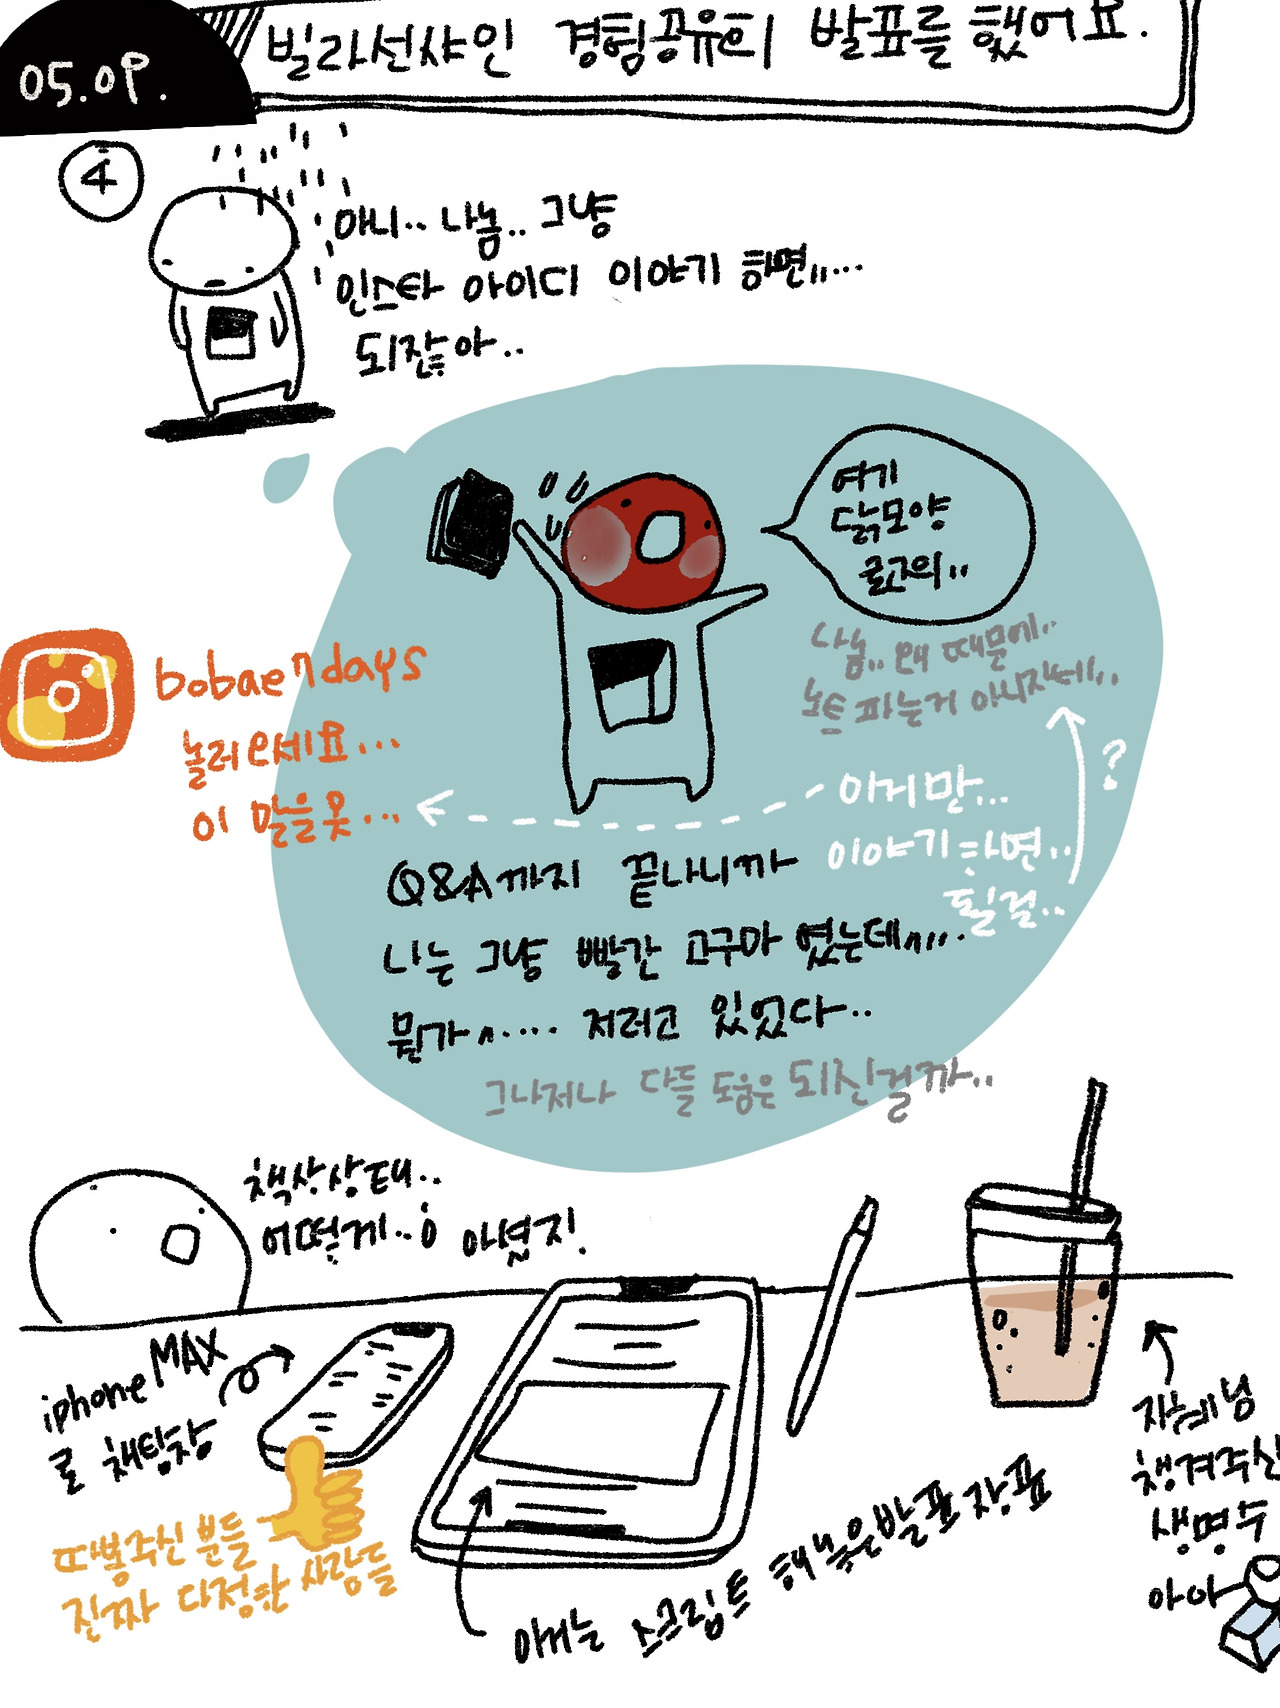 05.09.
빌라선샤인 경험공유회 발표를 했어요.
4
아니.. 나놈.. 그냥
인스타 아이디 이야기 하면,,...
되잖아..
여기
닭모양
로고의..
나놈.. 왜 때문에..
노트 파는거 아니자네..
bobaen7days
놀러오세요...
이 말을 못...
이거만...
이야기 하면..
될걸..
?
Q&A까지 끝나니까
나는 그냥 빨간 고구마 였는데,,,.
뭔가,..... 저러고 있었다..
그나저나 다들 도움은 되신걸까..
책상상태..
어떻게..아셨지!
iphone MAX
로 채팅창
따봉주신 분들
진짜 다정한 사람들
이거는 스크립트 해놓은 발표 장표
지혜님
챙겨주신
생명수
아아